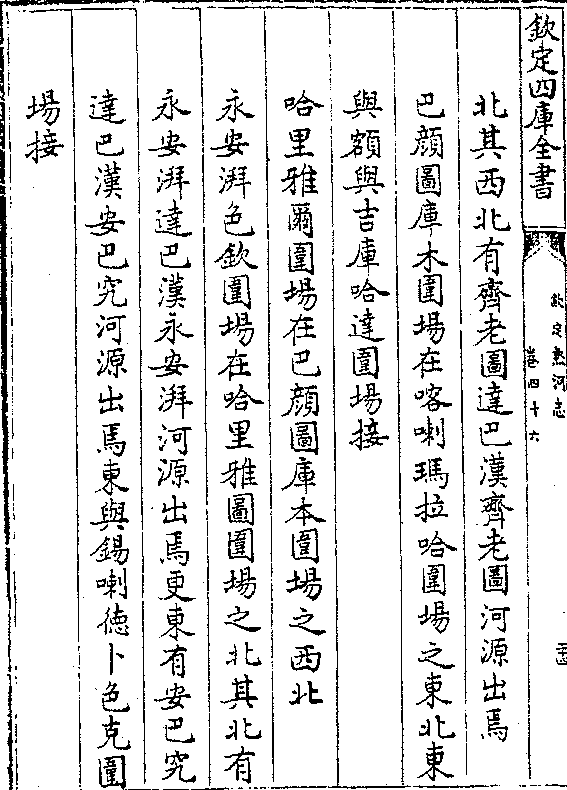 欽定四庫全書
欽定熱河志
卷四十六
北其西北有齊老圖達巴漢齊老圖河源出焉
巴顔圖庫木圍場在喀喇瑪拉哈圍場之東北東
與額與吉庫哈達圍場接
哈里雅爾圍場在巴顔圖庫本圍場之西北
永安湃色欽圍場在哈里雅圖圍場之北其北有
永安湃達巴漢永安湃河源出焉更東有安巴究
達巴漢安巴究河源出焉東與錫喇徳卜色克圍
場接